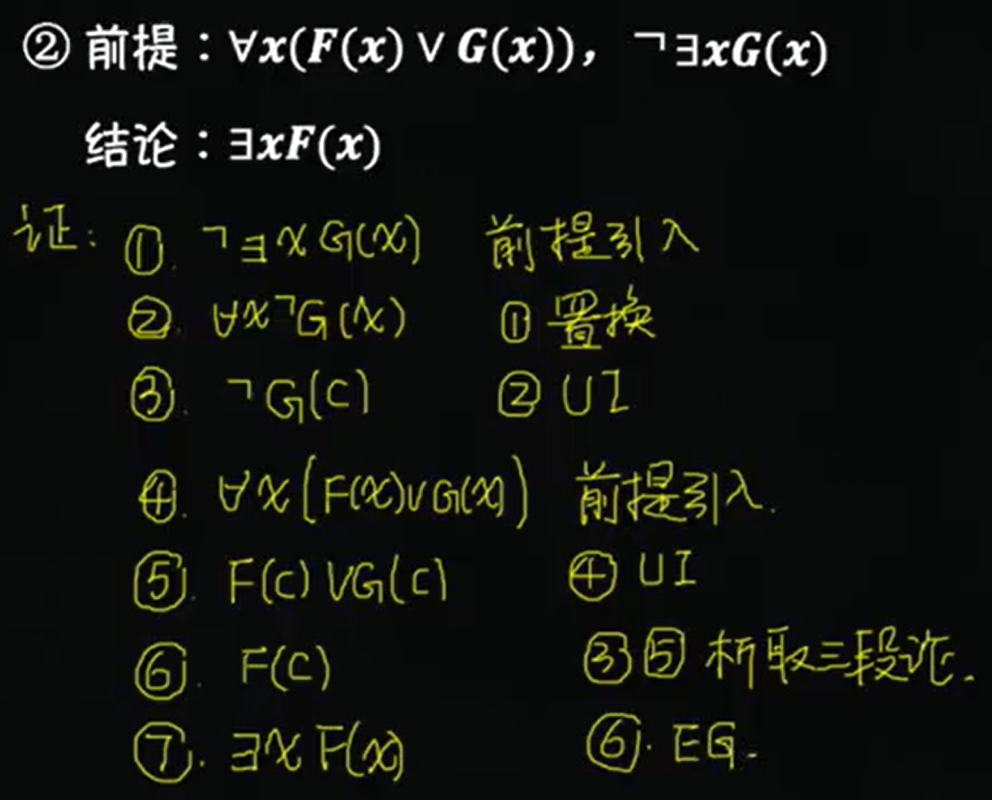 ② 前提：∀x(F(x) ∨ G(x))，¬∃xG(x)
结论：∃xF(x)
证: ①. ¬∃xG(x) 前提引入
②. ∀x¬G(x) ①置换
③. ¬G(c) ② UI
④. ∀x(F(x)∨G(x)) 前提引入.
⑤. F(c)∨G(c) ④ UI
⑥. F(c) ③⑤ 析取三段论.
⑦. ∃xF(x) ⑥. EG.